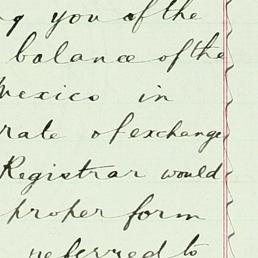 you of the
balance of the
Mexico in
rate of exchange
Registrar would
proper form
referred to